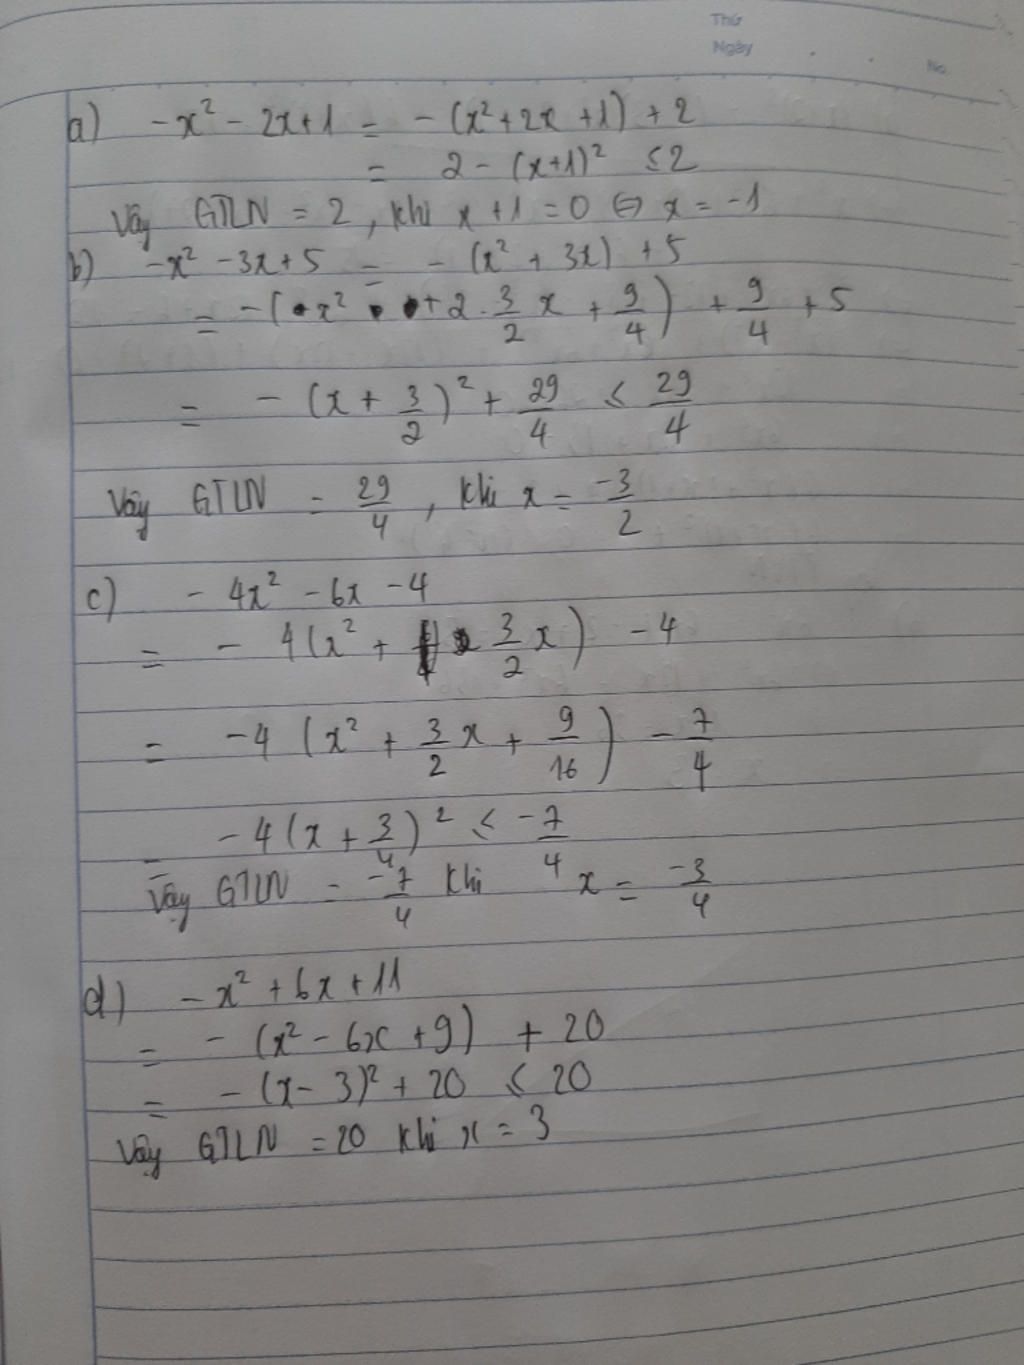 Thứ
Ngày
No.
a) -x² - 2x+1 = -(x²+2x+1) + 2
= 2 - (x+1)² ≤ 2
Vậy GTLN = 2, khi x+1 = 0 ⇔ x = -1
b) -x² - 3x + 5 = -(x² + 3x) + 5
= -(x² + 2. 3/2 x + 9/4) + 9/4 + 5
= -(x + 3/2)² + 29/4 ≤ 29/4
Vậy GTLN = 29/4, khi x = -3/2
c) - 4x² - 6x - 4
= - 4(x² + 3/2 x) - 4
= -4 (x² + 3/2 x + 9/16) - 7/4
= -4(x + 3/4)² ≤ -7/4
Vậy GTLN = -7/4 khi x = -3/4
d) -x² + 6x + 11
= - (x² - 6x + 9) + 20
= - (x - 3)² + 20 ≤ 20
Vậy GTLN = 20 khi x = 3